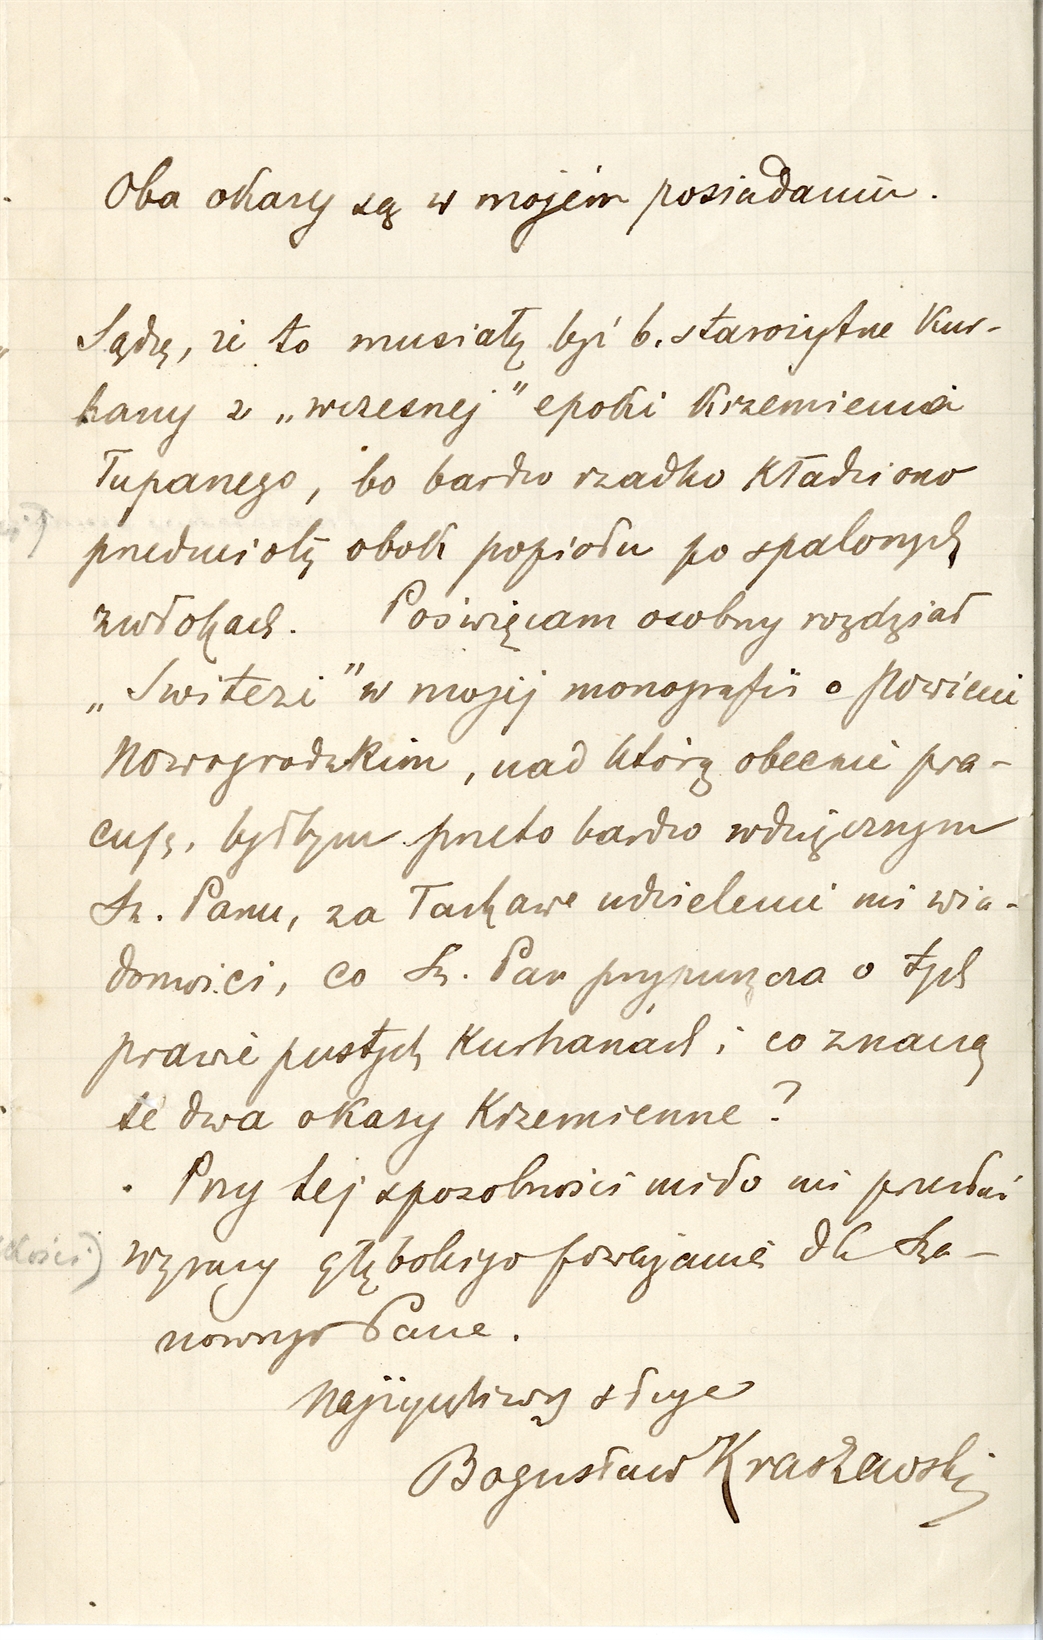 Oba okazy są w mojem posiadaniu.
Sądzę, że to musiały być b. starożytne Kur-
hany z „wczesnej" epoki Krzemienia
Łupanego, bo bardzo rzadko Kładziono
przedmioty obok popiołu po spalonych
zwłokach. Poświęcam osobny rozdział
„Świtezi" w mojej monografii o Powiecie
Nowogrodzkim, nad którą obecnie pra-
cuję, byłbym przeto bardzo wdzięcznym
Sz. Panu, za Łaskawe udzielenie mi wia-
domości, co Sz. Pan przypuszcza o tych
prawie pustych Kurhanach i co znaczą
te dwa okazy Krzemienne?
Przy tej sposobności miło mi przesłać
wyrazy głębokiego poważania dla Sza-
nownego Pana.
Najżyczliwszy sługa
Bogusław Kraszewski